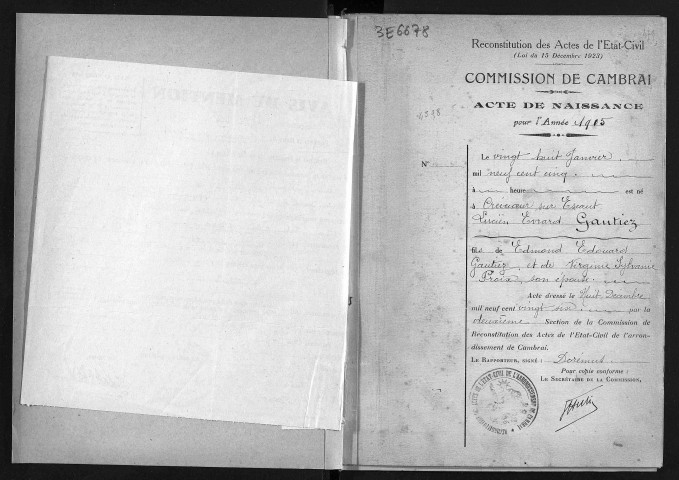 3E6678
Reconstitution des Actes de l'Etat-Civil
(Loi du 15 Décembre 1923)
COMMISSION DE CAMBRAI
ACTE DE NAISSANCE
pour l'Année 1905
N°
Le vingt huit Janvier
mil neuf cent cinq
à heure est né
à Crèvecœur sur Escaut
Lucien Evrard Gautiez
fils de Edmond Edouard
Gautiez et de Virginie Sylvanie
Proix, son épouse
Acte dressé le Huit Décembre
mil neuf cent vingt six par la
deuxième Section de la Commission de
Reconstitution des Actes de l'Etat-Civil de l'arron-
dissement de Cambrai.
LE RAPPORTEUR, SIGNÉ : Doremus
Pour copie conforme :
LE SECRÉTAIRE DE LA COMMISSION,